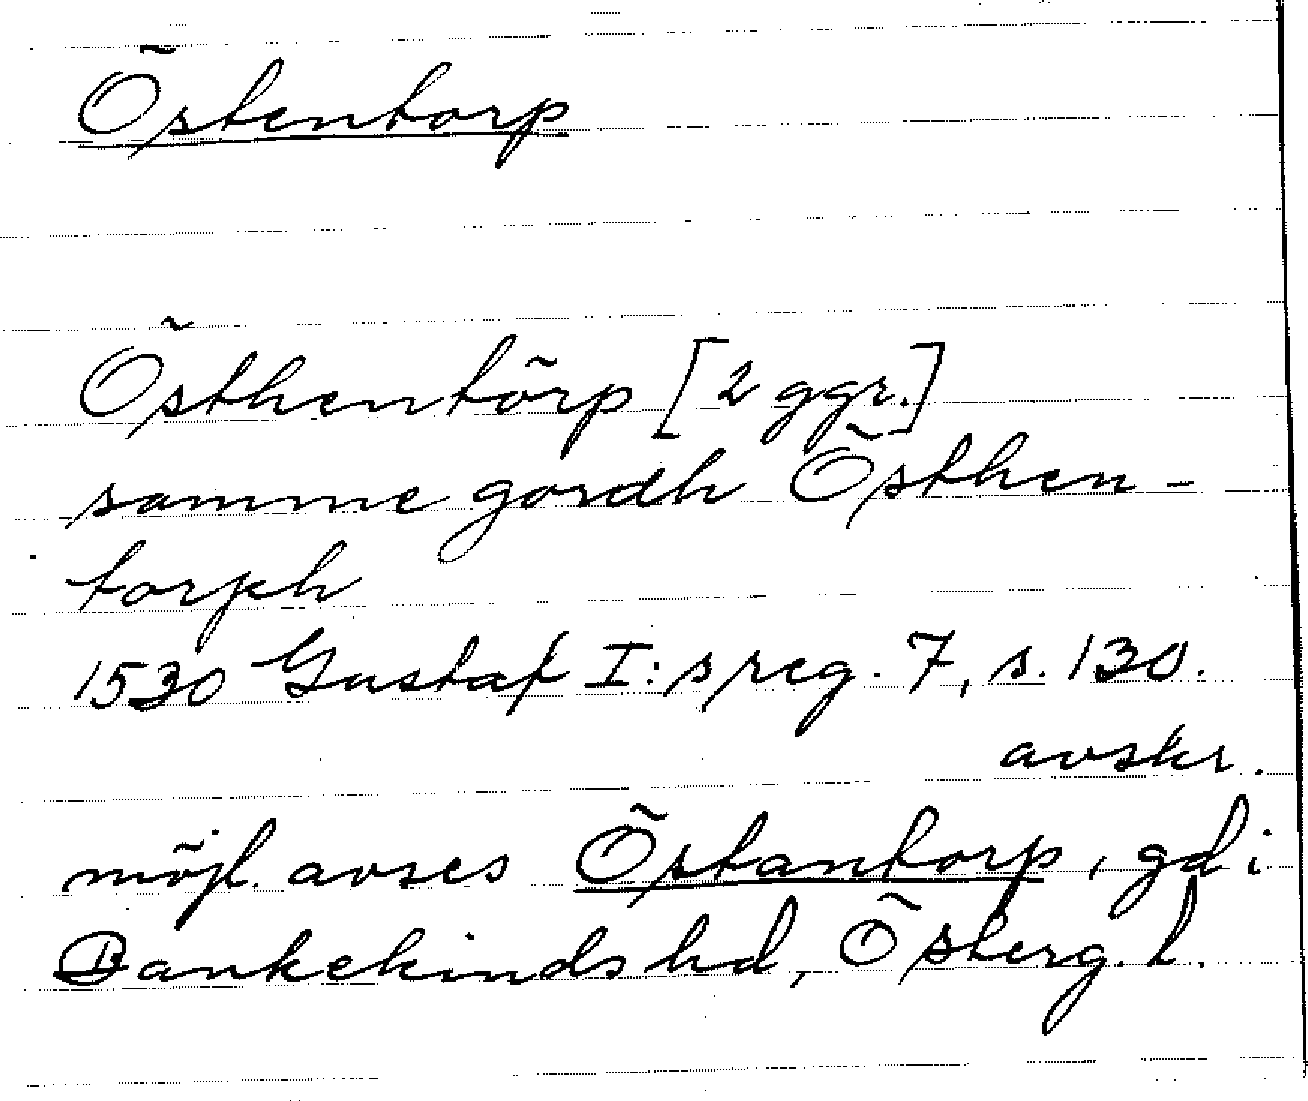 Östentorp
Östhentörp [2 ggr.]
samme gordh Östhen-
torph
1530 Gustaf I:s reg. 7, s. 130.
avskr.
möjl. avses Östantorp, gd i
Bankekinds hd, Österg. l.